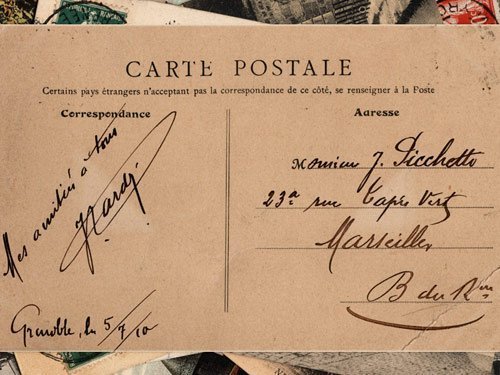 CARTE POSTALE
Certains pays étrangers n'acceptant pas la correspondance de ce côté, se renseigner à la Poste
Correspondance
Adresse
Mes amitiés à tous
Hardy
Grenoble, le 5/7/10
Monsieur J. Picchetto
23a rue Tapis Vert
Marseille
B du Rne